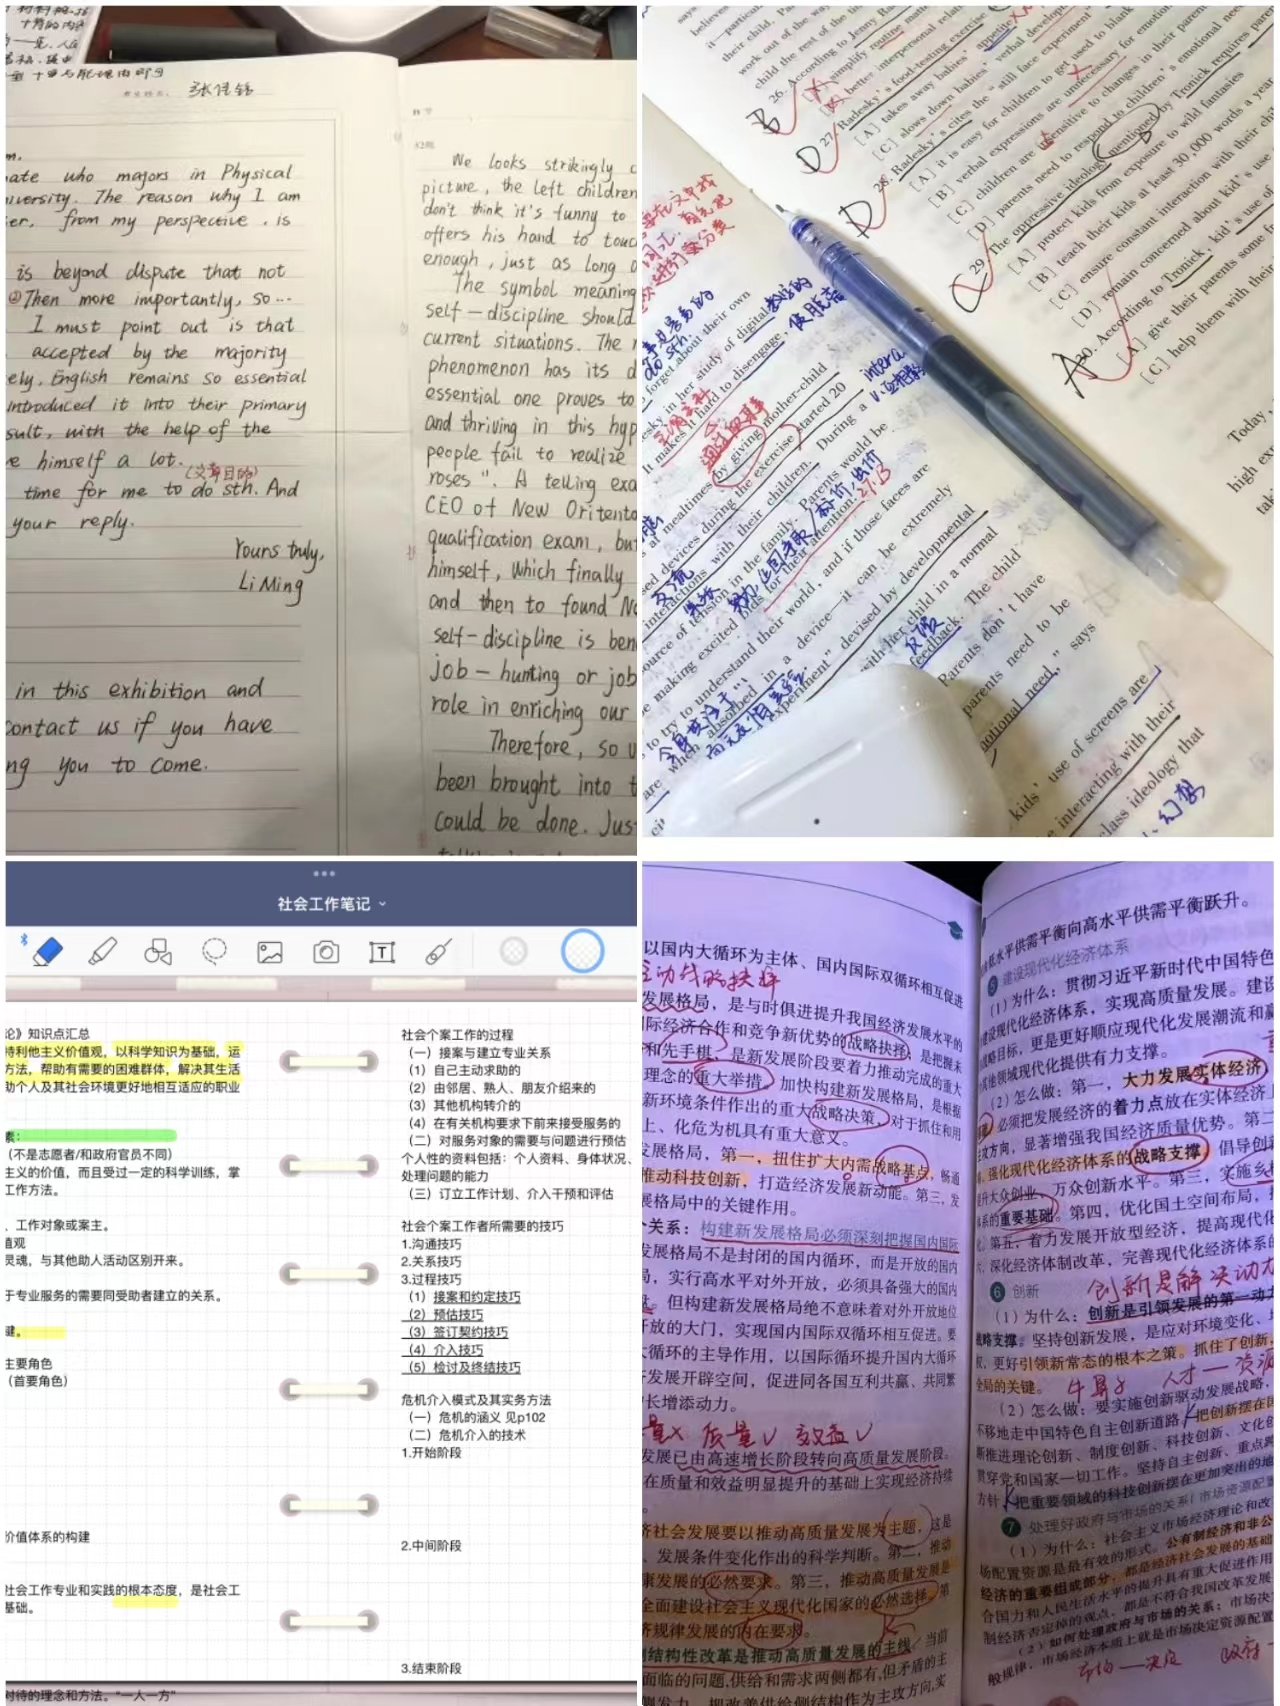 张佳铭
ate who majors in Physical
iversity. The reason why I am
er, from my perspective, is
is beyond dispute that not
②Then more importantly, so...
I must point out is that
accepted by the majority
ely, English remains so essential
introduced it into their primary
sult, with the help of the
e himself a lot.
(文章目的)
time for me to do sth. And
your reply.
Yours truly,
Li Ming
in this exhibition and
contact us if you have
ng you to come.
52题
We looks strikingly c
picture, the left children
don't think it's funny to
offers his hand to touc
enough, just as long a
The symbol meaning
self-discipline should
current situations. The r
phenomenon has its d
essential one proves to
and thriving in this hyp
people fail to realize
roses". A telling exa
CEO of New Oritenta
qualification exam, bu
himself, which finally
and then to found Ne
self-discipline is ben
job-hunting or job
role in enriching our
Therefore, so u
been brought into t
could be done. Jus
26. According to Jenny Ra
[A] simplify routine
B
27. Radesky's food-testing exercise
[A] takes away babies' appetite
[C] slows down babies' verbal develop
D
28. Radesky's cites the "still face experiment"
[A] it is easy for children to get used to blank
[B] verbal expressions are unnecessary for emotion
[C] children are sensitive to changes in their paren
[D] parents need to respond to children's emotional nee
D
29. The oppressive ideology mentioned by Tronick requires paren
[A] protect kids from exposure to wild fantasies
[B] teach their kids at least 30,000 words a year
[C] ensure constant interaction with their chi
[D] remain concerned about kid's use
C
30. According to Tronick, kid's use of
[A] give their parents some fr
[C] help them with their
A
Today,
high ex
tak
do sth.
forget about their own
esky in her study of digital
It makes it hard to disengage,
by giving mother-child
at mealtimes
during the exercise started 20
sed devices
interactions with their children. During a
交流
ource of tension in the family. Parents would be
e making excited bids for their attention. 27.B
to try to understand their world, and if those faces are
when absorbed in a device—it can be extremely
experiment" devised by developmental
with her child in a normal
反馈
feedback. The child
Parents don't have
parents need to be
otional need," says
kids' use of screens are
interacting with their
class ideology that
幻想
社会工作笔记
T
论》知识点汇总
持利他主义价值观，以科学知识为基础，运
方法，帮助有需要的困难群体，解决其生活
助个人及其社会环境更好地相互适应的职业
素：
（不是志愿者/和政府官员不同）
主义的价值，而且受过一定的科学训练，掌
工作方法。
、工作对象或案主。
值观
灵魂，与其他助人活动区别开来。
于专业服务的需要同受助者建立的关系。
键。
主要角色
（首要角色）
价值体系的构建
社会工作专业和实践的根本态度，是社会工
基础。
对待的理念和方法。“一人一方”
社会个案工作的过程
（一）接案与建立专业关系
（1）自己主动求助的
（2）由邻居、熟人、朋友介绍来的
（3）其他机构转介的
（4）在有关机构要求下前来接受服务的
（二）对服务对象的需要与问题进行预估
个人性的资料包括：个人资料、身体状况、
处理问题的能力
（三）订立工作计划、介入干预和评估
社会个案工作者所需要的技巧
1.沟通技巧
2.关系技巧
3.过程技巧
（1）接案和约定技巧
（2）预估技巧
（3）签订契约技巧
（4）介入技巧
（5）检讨及终结技巧
危机介入模式及其实务方法
（一）危机的涵义 见p102
（二）危机介入的技术
1.开始阶段
2.中间阶段
3.结束阶段
以国内大循环为主体、国内国际双循环相互促进
主动战略抉择
发展格局，是与时俱进提升我国经济发展水平的
际经济合作和竞争新优势的战略抉择，是把握未
和先手棋，是新发展阶段要着力推动完成的重大
理念的重大举措。加快构建新发展格局，是根据
新环境条件作出的重大战略决策，对于抓住和用
上、化危为机具有重大意义。
发展格局，第一，扭住扩大内需战略基点，畅通
推动科技创新，打造经济发展新动能。第三，发
展格局中的关键作用。
个关系：构建新发展格局必须深刻把握国内国际
发展格局不是封闭的国内循环，而是开放的国内
局，实行高水平对外开放，必须具备强大的国内
盘。但构建新发展格局绝不意味着对外开放地位
开放的大门，实现国内国际双循环相互促进。要
大循环的主导作用，以国际循环提升国内大循环
发展开辟空间，促进同各国互利共赢、共同繁
长增添动力。
量× 质量√ 效益√
发展已由高速增长阶段转向高质量发展阶段。
在质量和效益明显提升的基础上实现经济持续
济社会发展要以推动高质量发展为主题，这是
、发展条件变化作出的科学判断。第二，推动
康发展的必然要求。第三，推动高质量发展是
全面建设社会主义现代化国家的必然选择。第
济规律发展的内在要求。
结构性改革是推动高质量发展的主线。当前
面临的问题，供给和需求两侧都有，但矛盾的主
侧发力，把改善供给侧结构作为主攻方向，实
低水平供需平衡向高水平供需平衡跃升。
5 建设现代化经济体系
（1）为什么：贯彻习近平新时代中国特色
建设现代化经济体系，实现高质量发展。建设
战略目标，更是更好顺应现代化发展潮流和赢
其他领域现代化提供有力支撑。
（2）怎么做：第一，大力发展实体经济
必须把发展经济的着力点放在实体经济上
主攻方向，显著增强我国经济质量优势。第二
，强化现代化经济体系的战略支撑，倡导创新
提升大众创业、万众创新水平。第三，实施乡村
体系的重要基础。第四，优化国土空间布局，推
。第五，着力发展开放型经济，提高现代化
，深化经济体制改革，完善现代化经济体系的
6 创新
创新是解决动力
（1）为什么：创新是引领发展的第一动力
战略支撑。坚持创新发展，是应对环境变化、增
，更好引领新常态的根本之策。抓住了创新，
全局的关键。 牛鼻子 人才—资源
（2）怎么做：要实施创新驱动发展战略，
不移地走中国特色自主创新道路，把创新摆在国
断推进理论创新、制度创新、科技创新、文化创
贯穿党和国家一切工作。坚持自主创新、重点跨
方针，把重要领域的科技创新摆在更加突出的地
7 处理好政府与市场的关系（市场资源配置
（1）为什么：社会主义市场经济理论和改
场配置资源是最有效的形式。公有制经济和非公
经济的重要组成部分，都是经济社会发展的基础
合国力和人民生活水平的提升具有重大促进作用
制经济否定掉的观点，都是不符合我国改革发展
（2）如何处理政府与市场的关系：市场决定
般规律，市场经济本质上就是市场决定资源配置
市场—决定 政府—